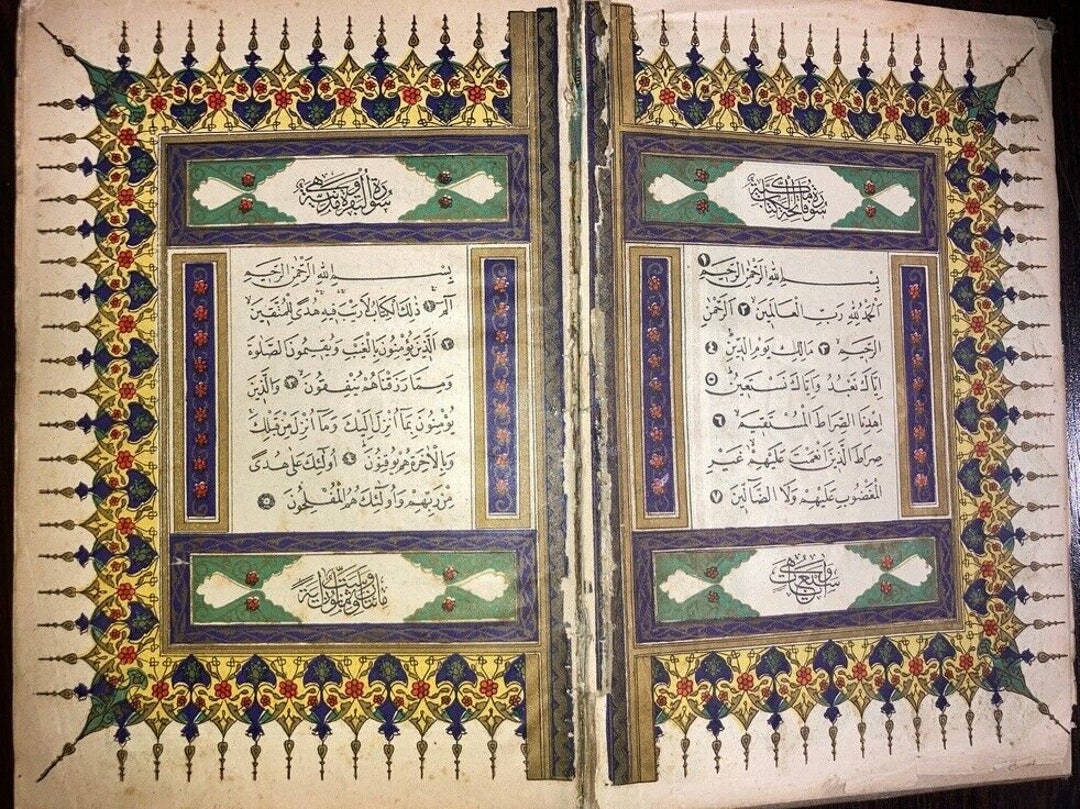 سورة فاتحة الكتاب
بِسْمِ اللهِ الرَّحْمٰنِ الرَّحِيمِ ١
اَلْحَمْدُ لِلّٰهِ رَبِّ الْعَالَمِينَ ٢ اَلرَّحْمٰنِ
الرَّحِيمِ ٣ مَالِكِ يَوْمِ الدِّينِ ٤
اِيَّاكَ نَعْبُدُ وَاِيَّاكَ نَسْتَعِينُ ٥
اِهْدِنَا الصِّرَاطَ الْمُسْتَقِيمَ ٦
صِرَاطَ الَّذِينَ اَنْعَمْتَ عَلَيْهِمْ غَيْرِ
الْمَغْضُوبِ عَلَيْهِمْ وَلَا الضَّالِّينَ ٧
وهي سبع آيات
سورة البقرة مدنية وهي
بِسْمِ اللهِ الرَّحْمٰنِ الرَّحِيمِ
الٓمٓ ١ ذٰلِكَ الْكِتَابُ لَا رَيْبَ فِيهِ هُدًى لِلْمُتَّقِينَ
٢ اَلَّذِينَ يُؤْمِنُونَ بِالْغَيْبِ وَيُقِيمُونَ الصَّلٰوةَ
وَمِمَّا رَزَقْنَاهُمْ يُنْفِقُونَ ٣ وَالَّذِينَ
يُؤْمِنُونَ بِمَا اُنْزِلَ اِلَيْكَ وَمَا اُنْزِلَ مِنْ قَبْلِكَ
وَبِالْاٰخِرَةِ هُمْ يُوقِنُونَ ٤ اُولٰئِكَ عَلٰى هُدًى
مِنْ رَبِّهِمْ وَاُولٰئِكَ هُمُ الْمُفْلِحُونَ ٥
مائتان وست وثمانون آية